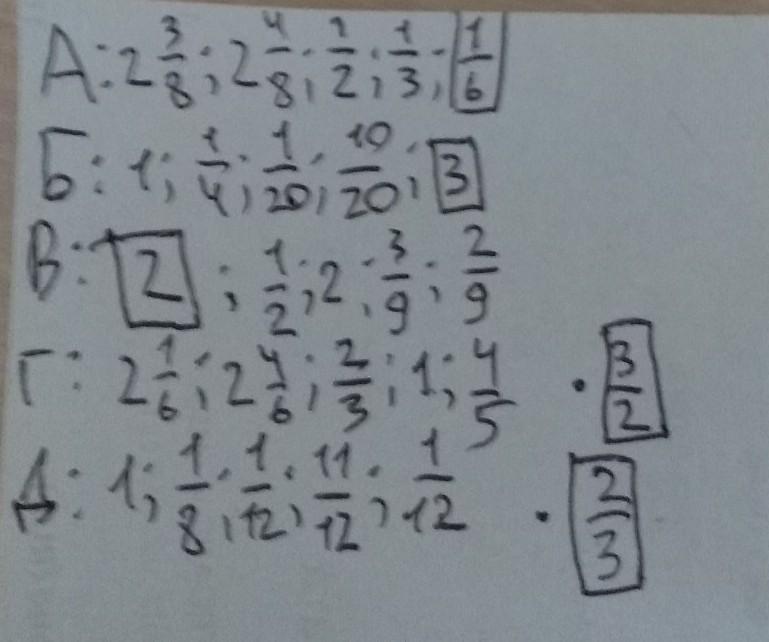 А: 2 3/8; 2 4/8; 1/2; 1/3; 1/6
Б: 1; 1/4; 1/20; 10/20; 3
В: 2; 1/2; 2; 3/9; 2/9
Г: 2 1/6; 2 4/6; 2/3; 1; 4/5 · 3/2
Д: 1; 1/8; 1/12; 11/12; 1/12 · 2/3